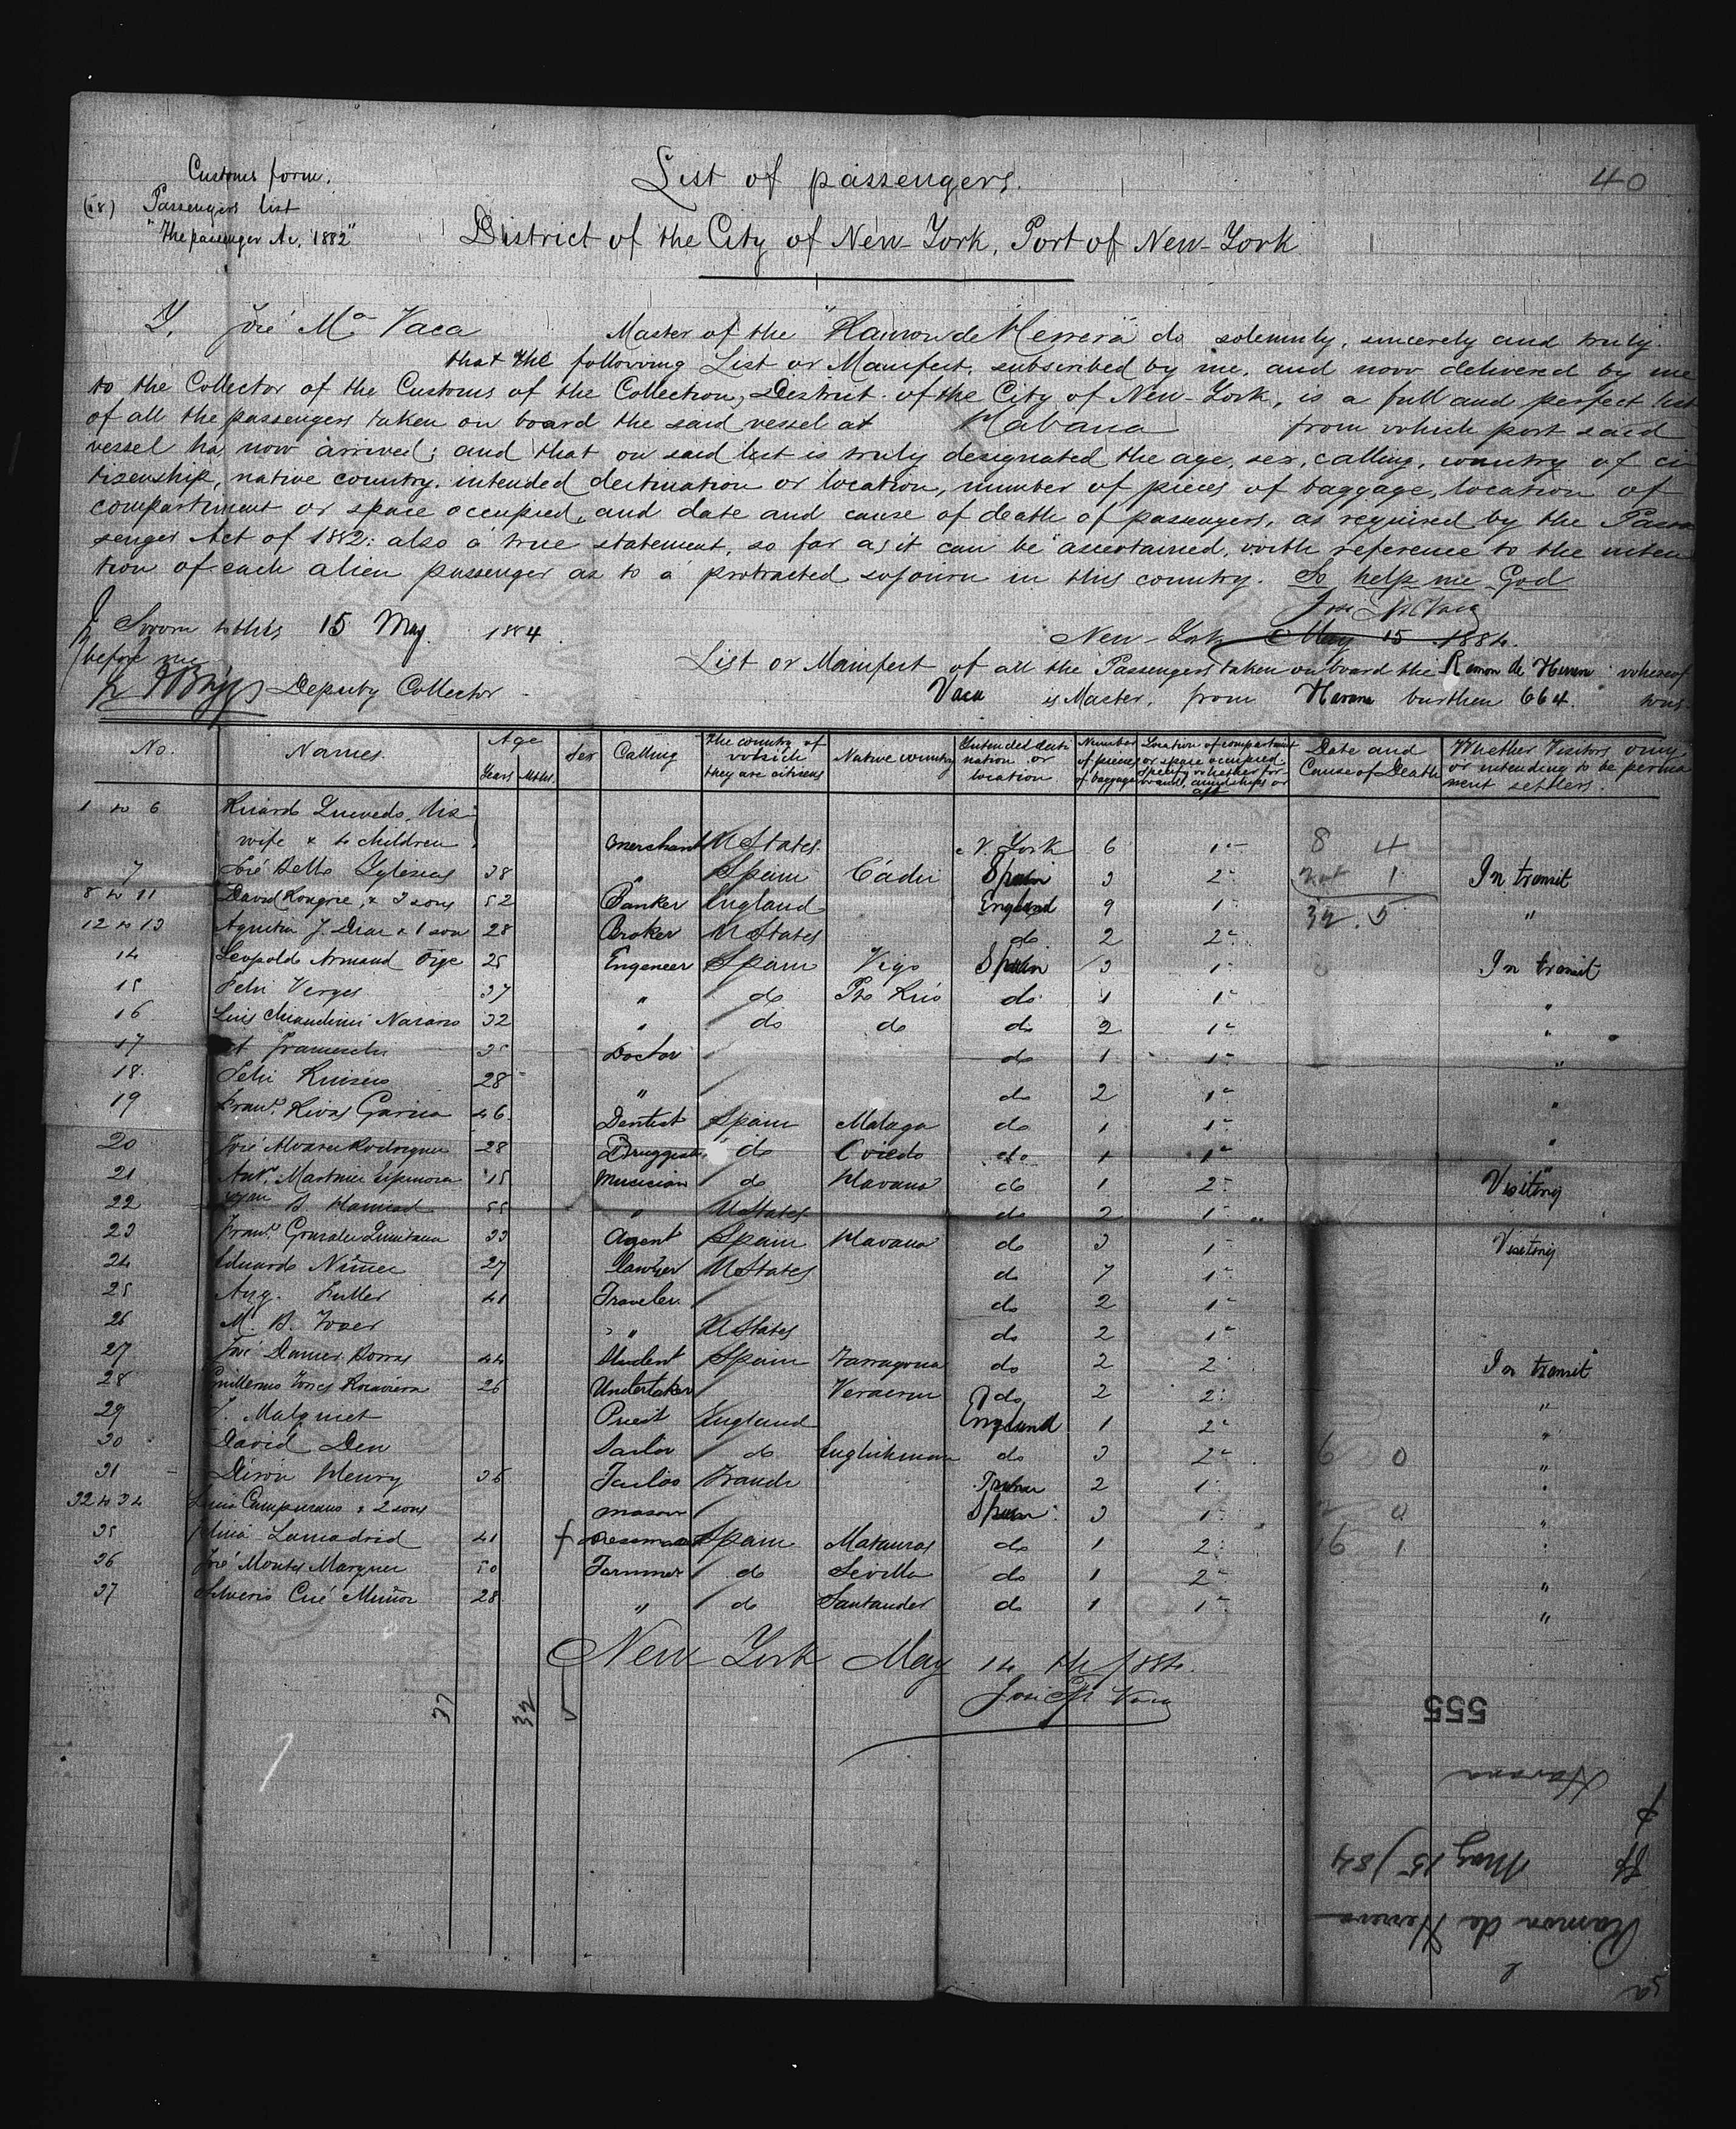 Customs form.
(58) Passengers list
"The passenger Ac, 1882"
List of passengers.
40
District of the City of New-York, Port of New-York
I, José Mª Vaca Master of the "Ramon de Herrera" do solemnly, sincerely and truly
that the following List or Manifest, subscribed by me, and now delivered by me
to the Collector of the Customs of the Collection, District of the City of New-York, is a full and perfect list
of all the passengers taken on board the said vessel at Habana from which port said
vessel has now arrived; and that on said list is truly designated the age, sex, calling, country of ci
tizenship, native country, intended destination or location, number of pieces of baggage, location of
compartiment or space occupied, and date and cause of death of passengers, as required by the Passe
senger Act of 1882: also a true statement, so far as it can be ascertained, with reference to the inten
tion of each alien passenger as to a protracted sojourn in this country. So help me God
José Mª Vaca
Sworn to this 15 May. 1884.
New-York May 15 1884.
before me
List or Mainfest of all the Passengers taken on board the Ramon de Herrera whereof
Deputy Collector
Vaca is Master, from Havana burthen 664. tons
No. Names. Age Years Mths. Sex Calling The country of which they are citizens Native country Intended desti nation or location Number of pieces of baggage Location of compartiment or space occupied Specify whether for ward, amidships or aft Date and Cause of Death Whether Visitors only or intending to be perma nent settlers.
1 to 6 Ricardo Quevedo, his
wife & 4 children Merchant U States. N. York 6 1ª 8 4
7 José Bello Yglesias 38 " Spain Cádiz Spain 3 2ª 1 In transit
8 to 11 David & 3 sons 52 Banker England England 9 1ª 32. 5 "
12 to 13 J. Diaz & 1 son 28 Broker U States do 2 2ª
14 Leopoldo Armand 25 Engeneer Spain Vigo Spain 3 1ª In transit
15 Felix Verges 37 " do Pto Rico do 1 1ª "
16 Luis Naranjo 32 " do do do 2 1ª "
17 Doctor do 1 1ª "
18. Felix 28 " do 2 1ª "
19 Franco. Rivas Garcia 46. Dentist Spain Malaga do 1 1ª "
20 José Alvarez Rodriguez 28 Druggist do Oviedo do 1 1ª "
21 Anto. Martinez Espinosa 15 Musician do Havana do 1 2ª Visiting
22 B. 55 " U States do 2 1ª "
23 Franco. Gonzalez Quintana 33 Agent Spain Havana do 3 1ª Visiting
24 Eduardo Nuñez 27 Lawyer U States do 7 1ª
25 Aug. 41 Traveler do 2 1ª
26 M. B. " U States do 2 1ª
27 José 44 Student Spain Tarragona do 2 2ª In transit
28 Guillermo Torres 26 Undertaker Veracruz do 2 2ª "
29 Priest England England 1 2ª "
30 David Den Sailor do Englishman do 3 2ª 6 0 "
31 Henry 36 France 2 1ª "
32 to 34 & 2 sons mason Spain 3 1ª 0 "
35 Lamadrid 41 f Spain Matanzas do 1 2ª 16 1 "
36 José Montes Marquez 50 Farmmer do Sevilla do 1 2ª "
37 Silverio Cué Muñoz 28 " do Santander do 1 1ª "
New York May 14 th / 1884.
José Mª Vaca
37 32 5
555
Havana
May 15/84
Ramon de Herrera